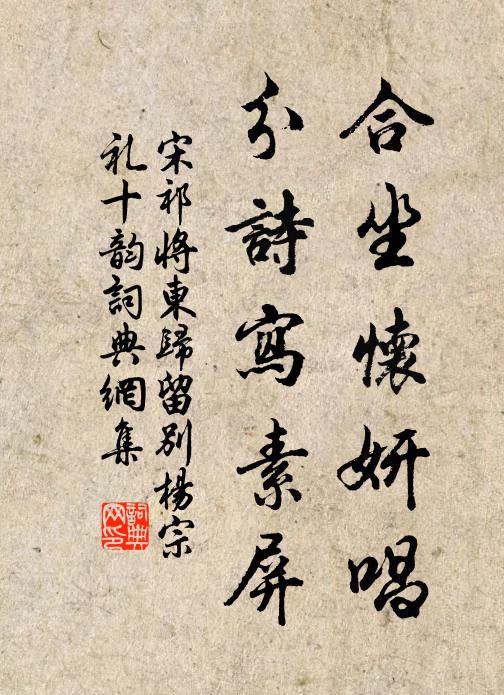 合坐懷妍唱
分詩寫素屏
宋祁將東歸留別楊宗
礼十韵詞典網集
詞典网印